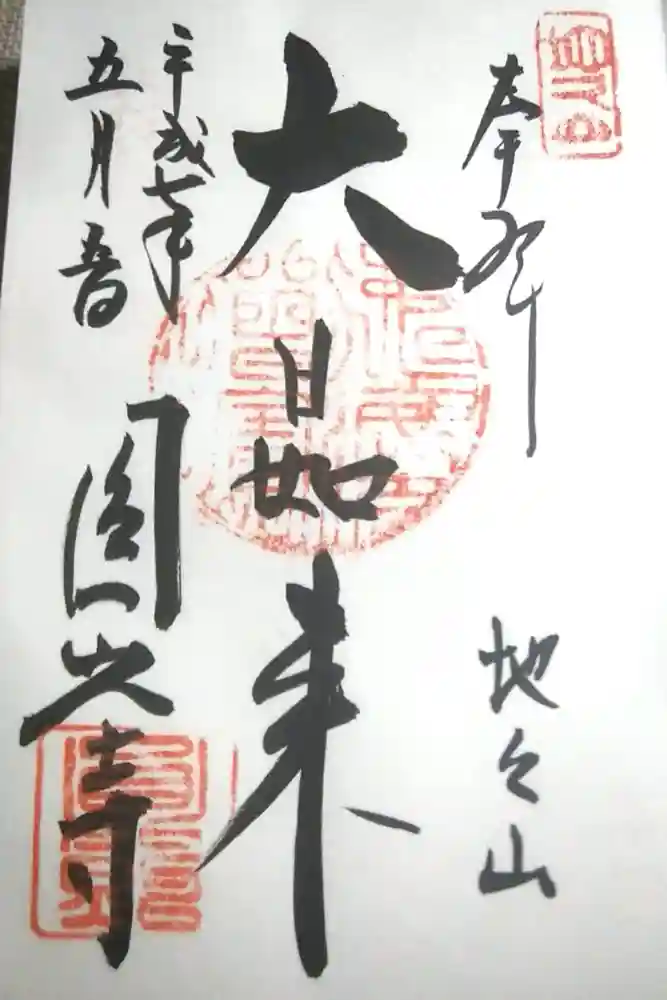 奉拝
地々山
大日如来
平成七年
五月吉日
圓光寺